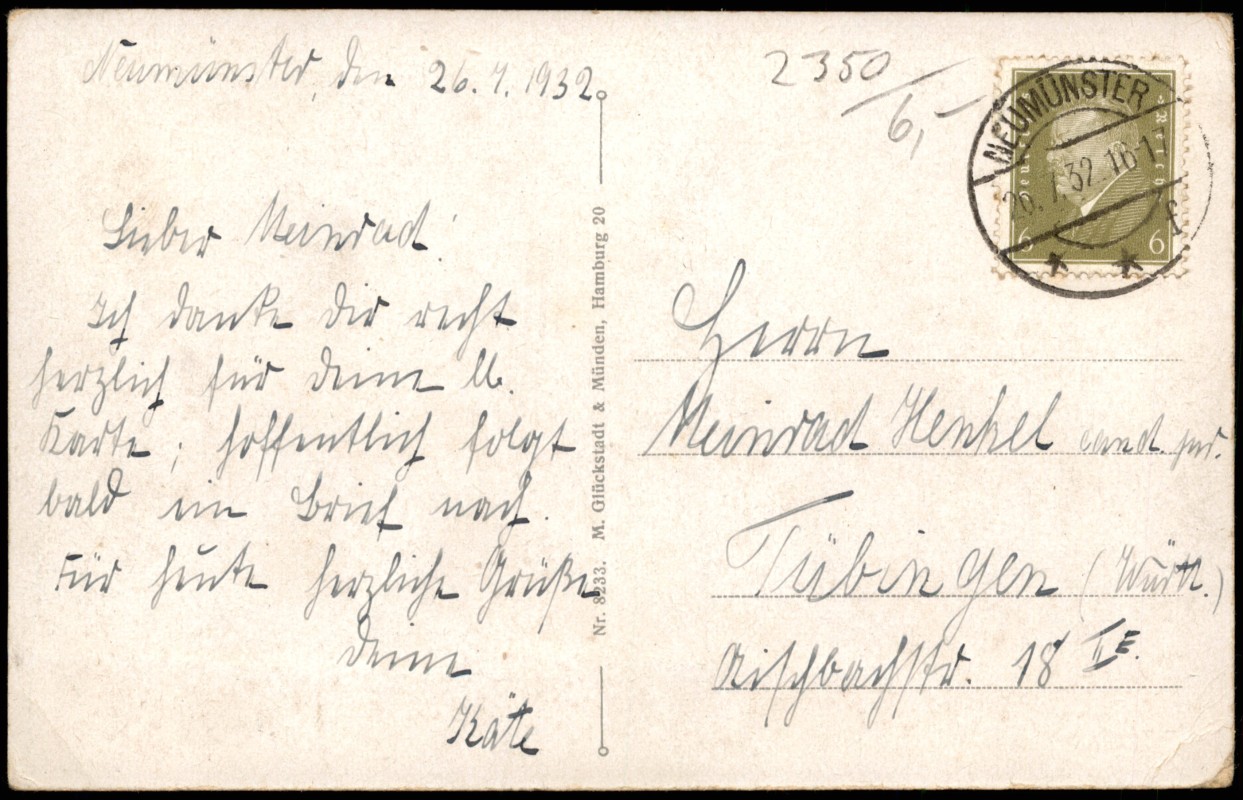 Neumünster, den 26.7.1932.
Lieber Meinrad!
Ich danke Dir recht
herzlich für Deine lb.
Karte; hoffentlich folgt
bald ein Brief nach.
Für heute herzliche Grüße
Deine
Käte
Nr. 8233. M. Glückstadt & Münden, Hamburg 20
2350
6,-
NEUMÜNSTER
26.7.32.16-17
* f *
Deutsches Reich
6 6
Herrn
Meinrad Henkel cand. jur.
Tübingen (Württ.)
Aischbachstr. 18 II